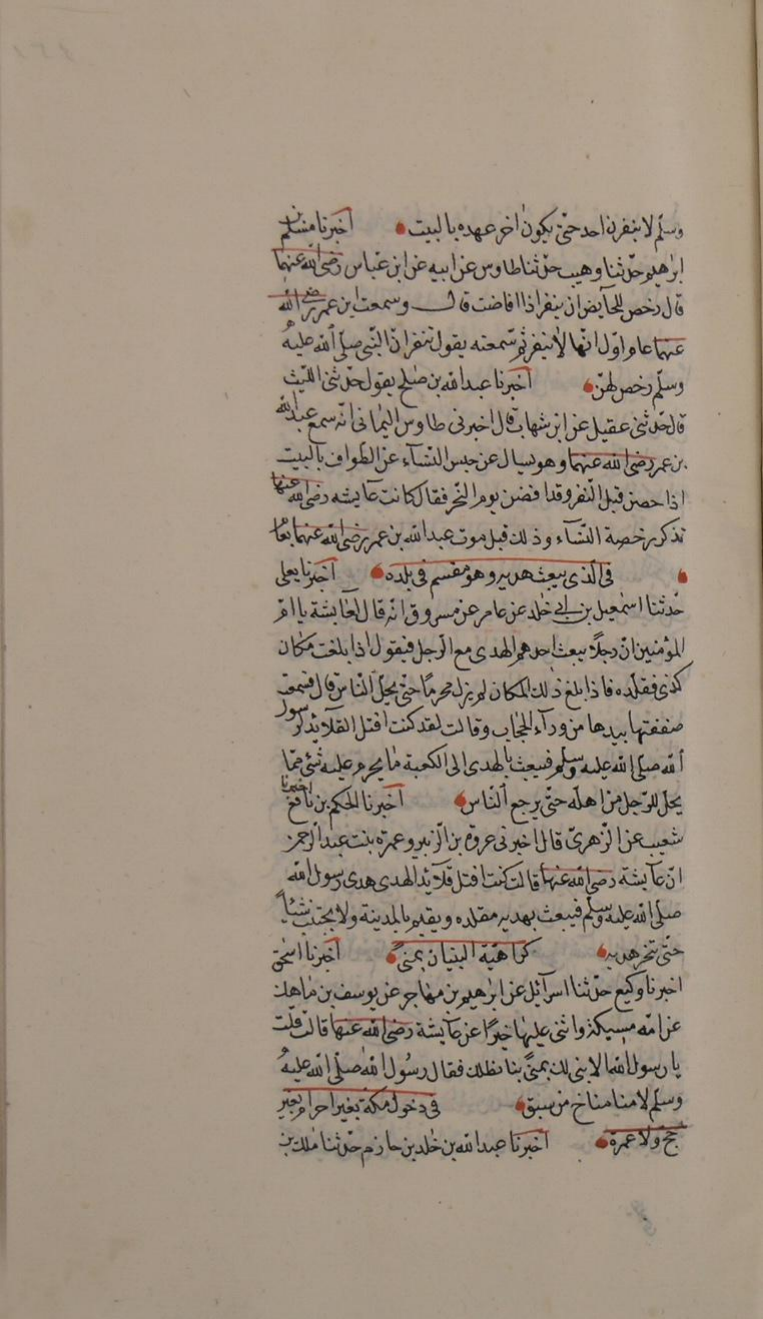 وسلّم لا ينفرن احد حتّى يكون اخر عهده بالبيت اخبرنا مسلم بن
ابراهيم حدّثنا وهيب حدّثنا طاوس عن ابيه عن ابن عبّاس رضى الله عنهما
قال رخص للحآيض ان ينفر اذا افاضت قال وسمعت ابن عمر رضى الله
عنهما عام اوّل انّها لا تنفر ثم سمعته يقول تنفر انّ النّبى صلّى الله عليه
وسلّم رخص لهنّ اخبرنا عبد الله بن صٰلح يقول حدّثنى اللّيث
قال حدّثنى عقيل عن ابن شهاب قال اخبرنى طاوس اليمانى انّه سمع عبد الله
بن عمر رضى الله عنهما وهو يسال عن حبس النّسآء عن الطّواف بالبيت
اذا حضن قبل النّفر وقد افضن يوم النّحر فقال كانت عآيشه رضى الله عنها
تذكر رخصة النّسآء وذلك قبل موت عبد الله بن عمر رضى الله عنهما بعام
فى الّذى يبعث هديه وهو مقسم فى بلده اخبرنا يعلى
حدّثنا اسمٰعيل بن ابى خٰلد عن عامر عن مسروق انّه قال لعٰايشة يا امّ
المؤمنين انّ رجلًا يبعث احدهم الهدى مع الرّجل فيقول اذا بلغت مكان
كذى فقلّده فاذا بلغ ذٰلك المكان لم يزل محرمًا حتّى يحلّ النّاس قال فسمعت
صفقتها بيدها من ورآء الحجاب وقالت لقد كنت افتل القلآئد لرسول
الله صلى الله عليه وسلم فيبعث بالهدى الى الكعبة ما يحرم عليه شىء ممّا
يحلّ للرّجل من اهله حتّى يرجع النّاس اخبرنا الحكم بن نافع اخبرنا
شعيب عن الزّهرىّ قال اخبرنى عروة بن الزّبير وعمرة بنت عبد الرّحمن
انّ عآيشة رضى الله عنها قالت كنت افتل قلآئد الهدى هدى رسول الله
صلى الله عليه وسلّم فيبعث بهديه مقلّده ويقيم بالمدينة ولا يجتنب شيئاً
حتّى ينحر هديه كراهيّة البنيان بمنىً اخبرنا اسحٰق
اخبرنا وكيع حدّثنا اسرآئيل عن ابرٰهيم بن مهاجر عن يوسف بن ماهك
عن امّه مسيكة واثنى عليها خيرًا عن عآيشة رضى الله عنها قالت قلت
يا رسول الله الا نبنى لك بمنىً بنآ يظلك فقال رسُول الله صلّى الله عليهُ
وسلم لا منا مناخ من سبق فى دخول مكّة بغير احرام بغير
حج ولا عمرة اخبرنا عبد الله بن خٰلد بن حازم حدّثنا مٰلك بن